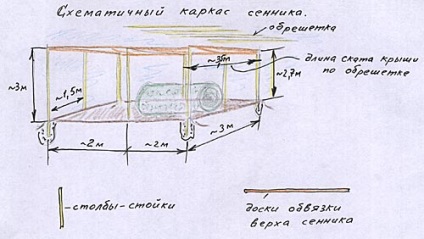 Схематичный каркас сенника.
обрешетка
~3,5м
длина ската крыши
по обрешетке
~3м
~1,5м
~2,7м
~2м
~2м
~3м
-столбы-стойки
доски обвязки
верха сенника